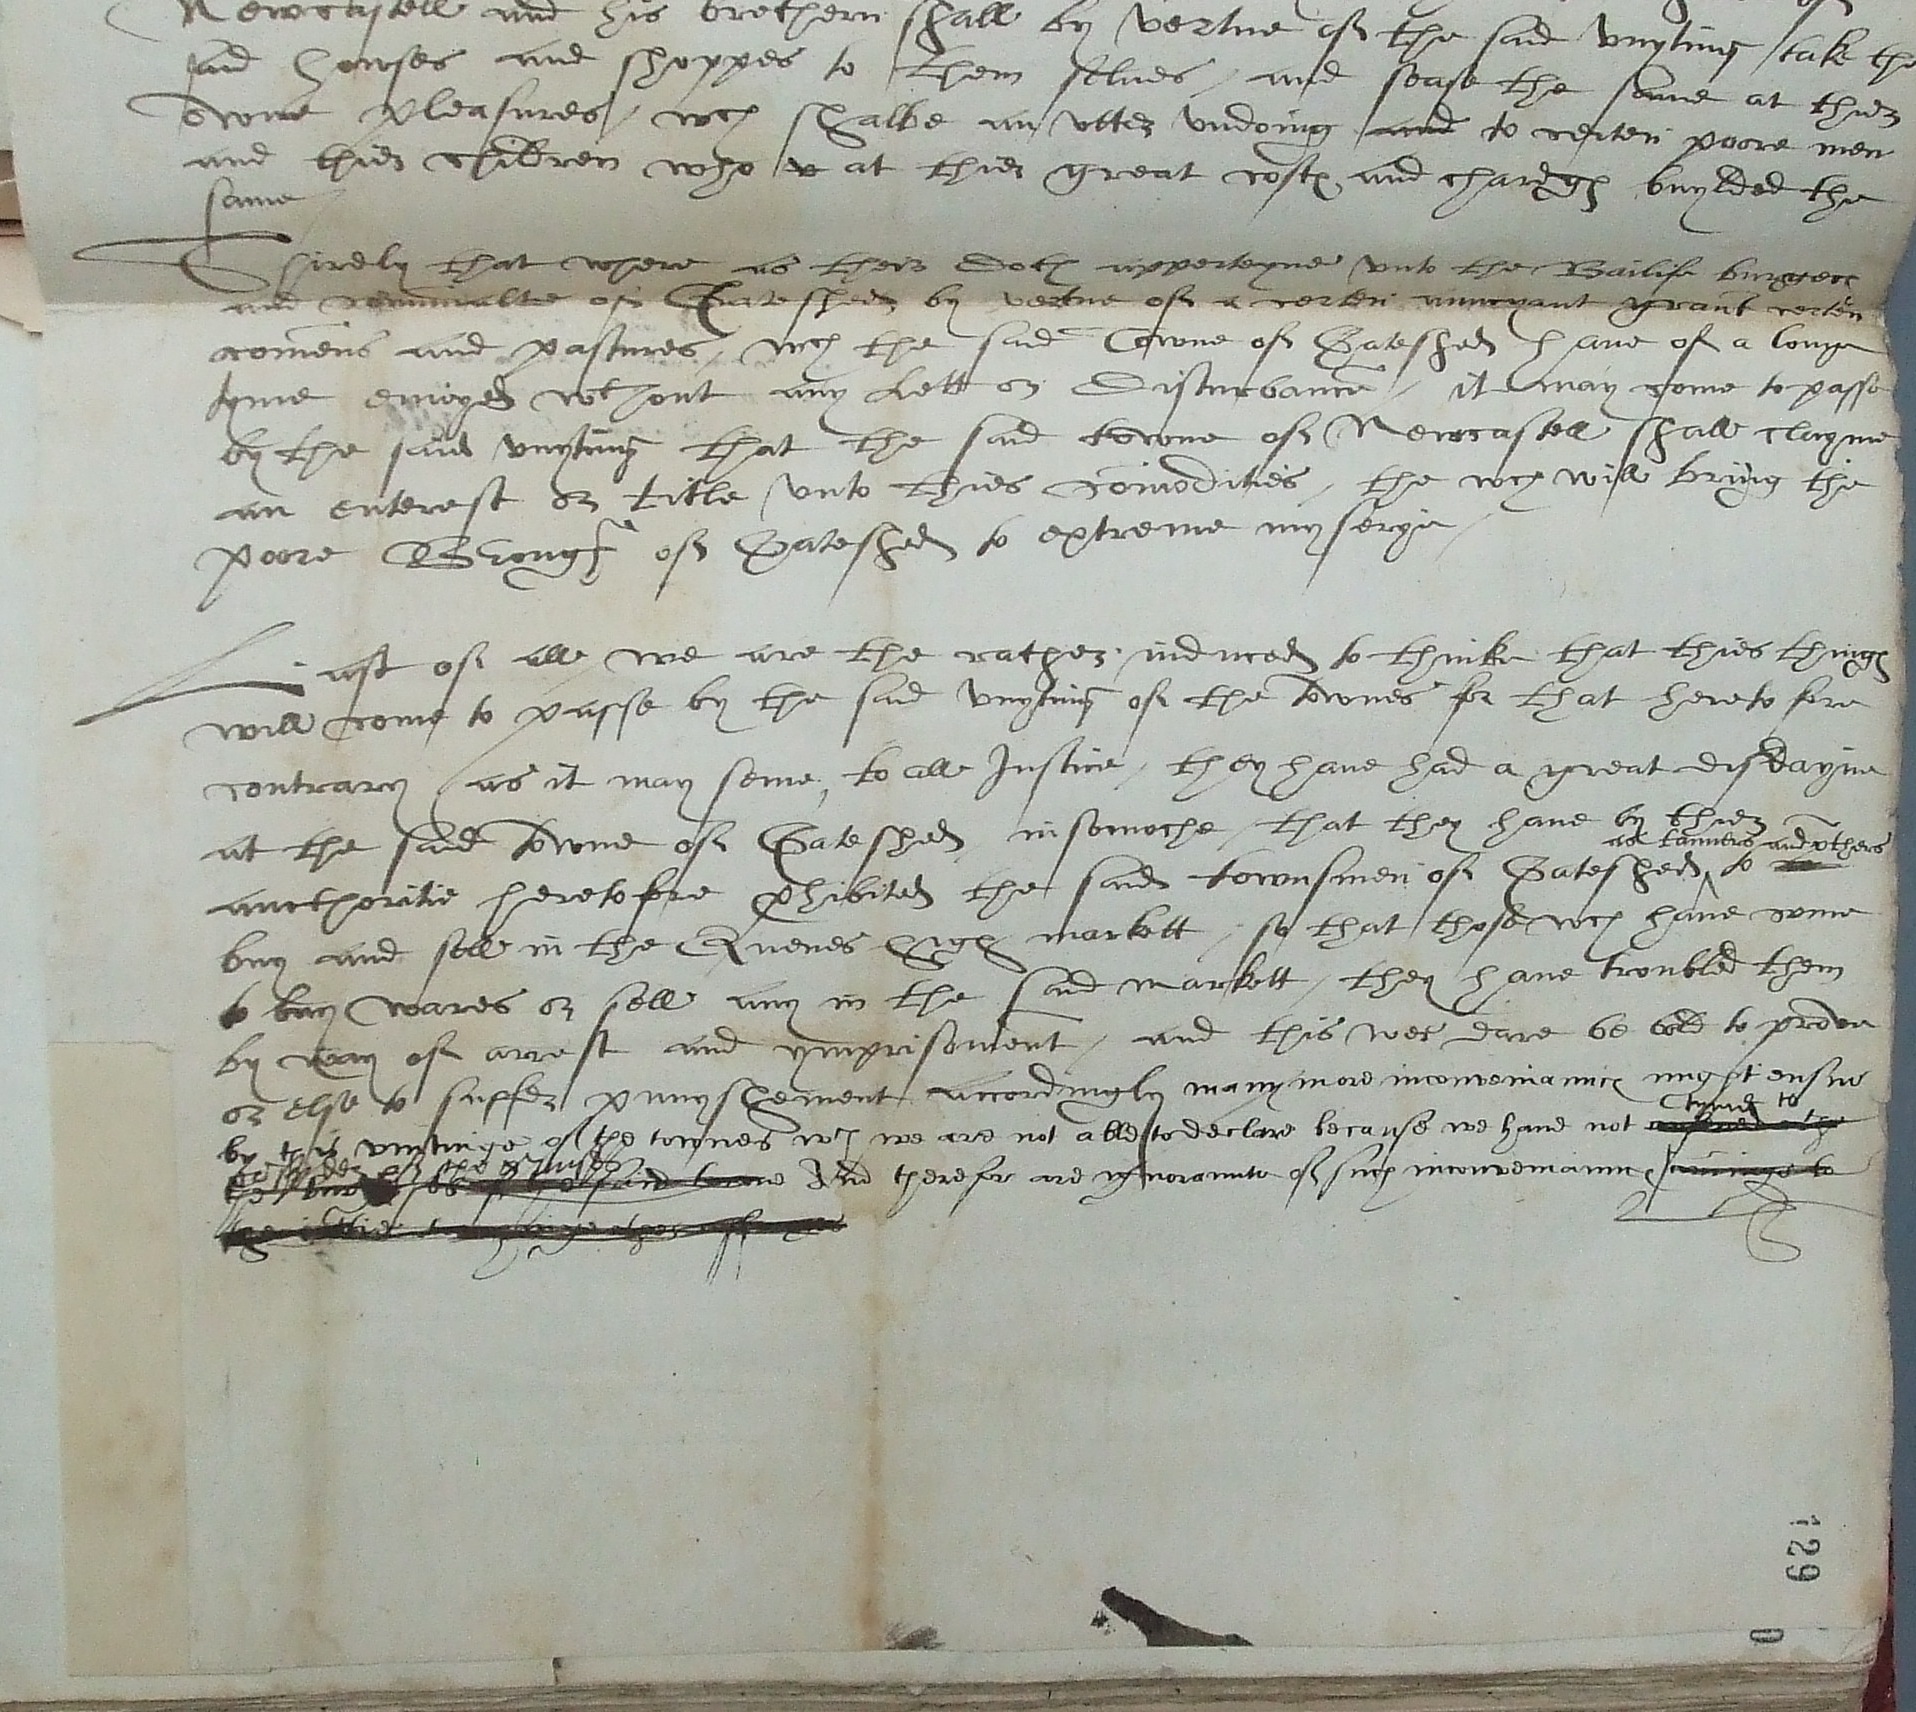 Newcastell and his brethern shall by vertue of the said vnyting take the
said howses and shoppes to them selues / and sease the same at thier
owne pleasures / wch shalbe an vtter vndoing and to certen poore men
and thier children who at thier great costes and chardges buylded the
same
Thirdly that where as their doth apperteyne vnto the Bailife burgesses
and cominaltie of Gateshed by vertue of a certen auncyant graunt certen
comens and pastures / wch the said Towne of Gateshed haue of a longe
tyme enioyed wthout any Lett or Disturbance / it may come to passe
by the said vnyting that the said towne of Newcastell shall clayme
an enterest or title vnto thies comodities / the wch will bring the
poore of Gateshed to extreme myserye /
Last of all we are the rather induced to thinke that thies things
will come to passe by the said vnyting of the townes for that hereto fore
contrary as it may seme, to all Justice / they haue had a great disdayne
at the said towne of Gateshed insomoche / that they haue by thier
as tanners and others
aucthoritie heretofore phibited the said townsmen of Gateshed to
buy and sell in the Quenes high markett / so that those wch haue come
to buy wares or sell any in the said markett / they haue troubled them
by way of arrest and ymprisonment / and this wee dare be bold to prove
or else to suffer punyshement accordingly many more inconveniannces might ensue
tyme to
by this vnitinge of the townes wch we are not able to declare because we haue not
And therefor are ignorannte of such inconveniannces
129